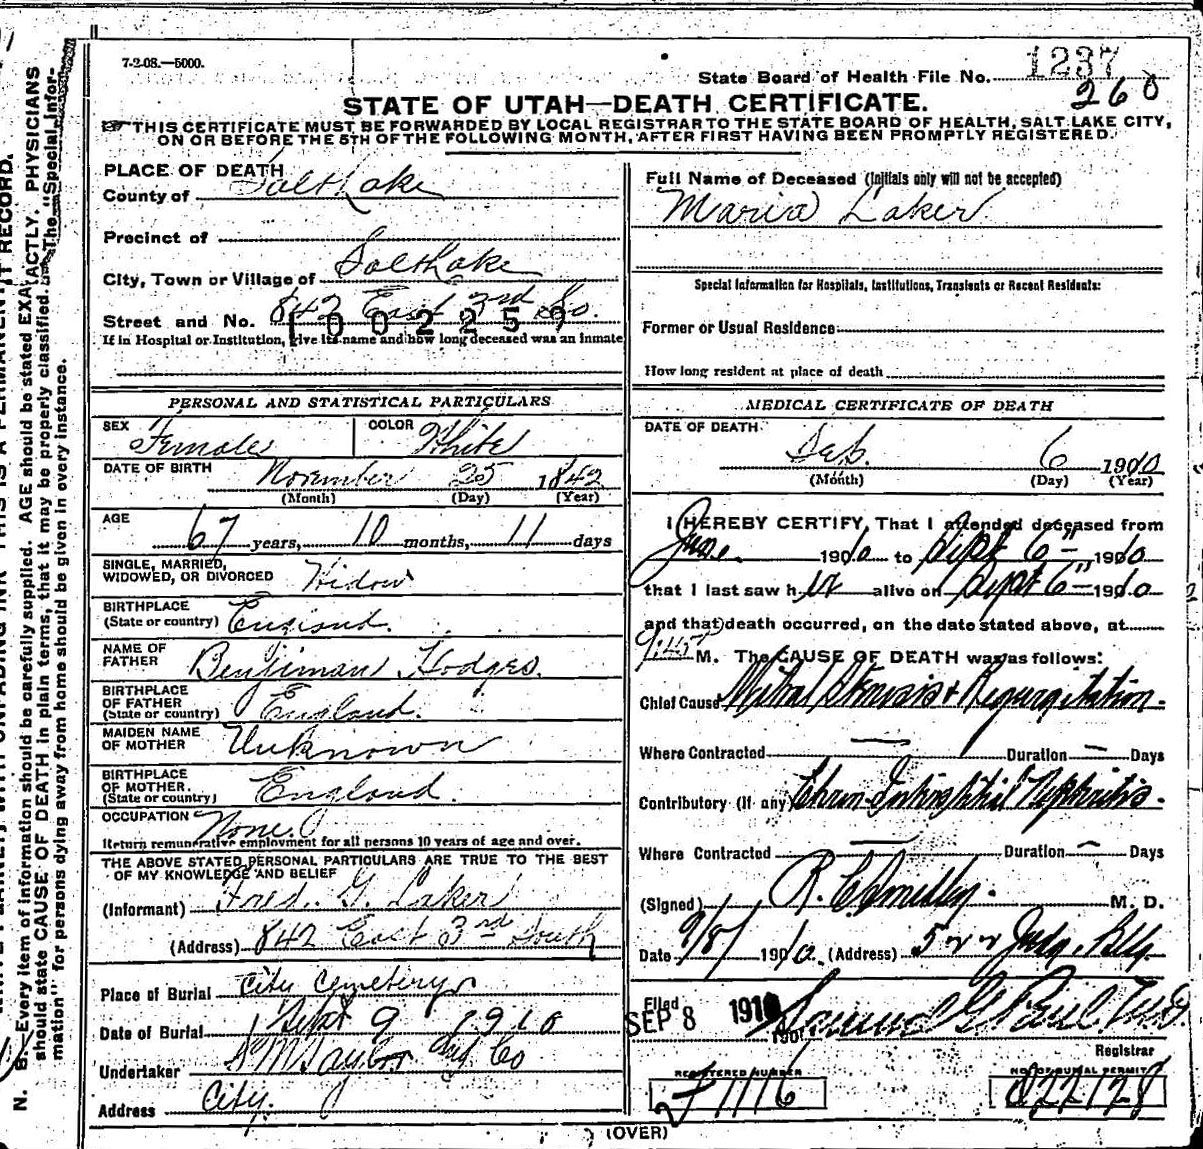 7-2-08.—5000.
State Board of Health File No. 1237
260
STATE OF UTAH—DEATH CERTIFICATE.
THIS CERTIFICATE MUST BE FORWARDED BY LOCAL REGISTRAR TO THE STATE BOARD OF HEALTH, SALT LAKE CITY,
ON OR BEFORE THE 5TH OF THE FOLLOWING MONTH, AFTER FIRST HAVING BEEN PROMPTLY REGISTERED.
PLACE OF DEATH
County of Salt Lake
Precinct of
City, Town or Village of Salt Lake
Street and No. 842 East 3rd So.
1002257
If in Hospital or Institution, give its name and how long deceased was an inmate
Full Name of Deceased (Initials only will not be accepted)
Maria Laker
Special Information for Hospitals, Institutions, Transients or Recent Residents:
Former or Usual Residence
How long resident at place of death
PERSONAL AND STATISTICAL PARTICULARS
SEX Female COLOR White
DATE OF BIRTH November 25 1842
(Month) (Day) (Year)
AGE 67 years, 10 months, 11 days
SINGLE, MARRIED,
WIDOWED, OR DIVORCED Widow
BIRTHPLACE
(State or country) England.
NAME OF
FATHER Benjiman Hodges.
BIRTHPLACE
OF FATHER
(State or country) England.
MAIDEN NAME
OF MOTHER Unknown
BIRTHPLACE
OF MOTHER.
(State or country) England.
OCCUPATION None.
Return remunerative employment for all persons 10 years of age and over.
THE ABOVE STATED PERSONAL PARTICULARS ARE TRUE TO THE BEST
OF MY KNOWLEDGE AND BELIEF
(Informant) Fred. G. Laker
(Address) 842 East 3rd South
Place of Burial City Cemetery
Date of Burial Sept 9 1910
Undertaker S M Taylor Und Co
Address City.
MEDICAL CERTIFICATE OF DEATH
DATE OF DEATH. Sep. 6 1910
(Month) (Day) (Year)
I HEREBY CERTIFY, That I attended deceased from
June 1910 to Sept 6" 1910
that I last saw her alive on Sept 6" 1910
and that death occurred, on the date stated above, at
9:45 P M. The CAUSE OF DEATH was as follows:
Chief Cause Mitral Stenosis + Regurgitation.
Where Contracted — Duration — Days
Contributory (If any) Chron. Interstitial Nephritis.
Where Contracted — Duration — Days
(Signed) R. M. D.
Date 9/8/ 1910. (Address) 522 Judge Bldg
Filed
SEP 8 1910 190 Samuel G. Paul M.D.
Registrar
REGISTERED NUMBER NO. OF BURIAL PERMIT
F1116 D22128
(OVER)
N. B.—Every item of information should be carefully supplied. AGE should be stated EXACTLY. PHYSICIANS
should state CAUSE OF DEATH in plain terms, that it may be properly classified. The "Special Infor-
mation" for persons dying away from home should be given in every instance.